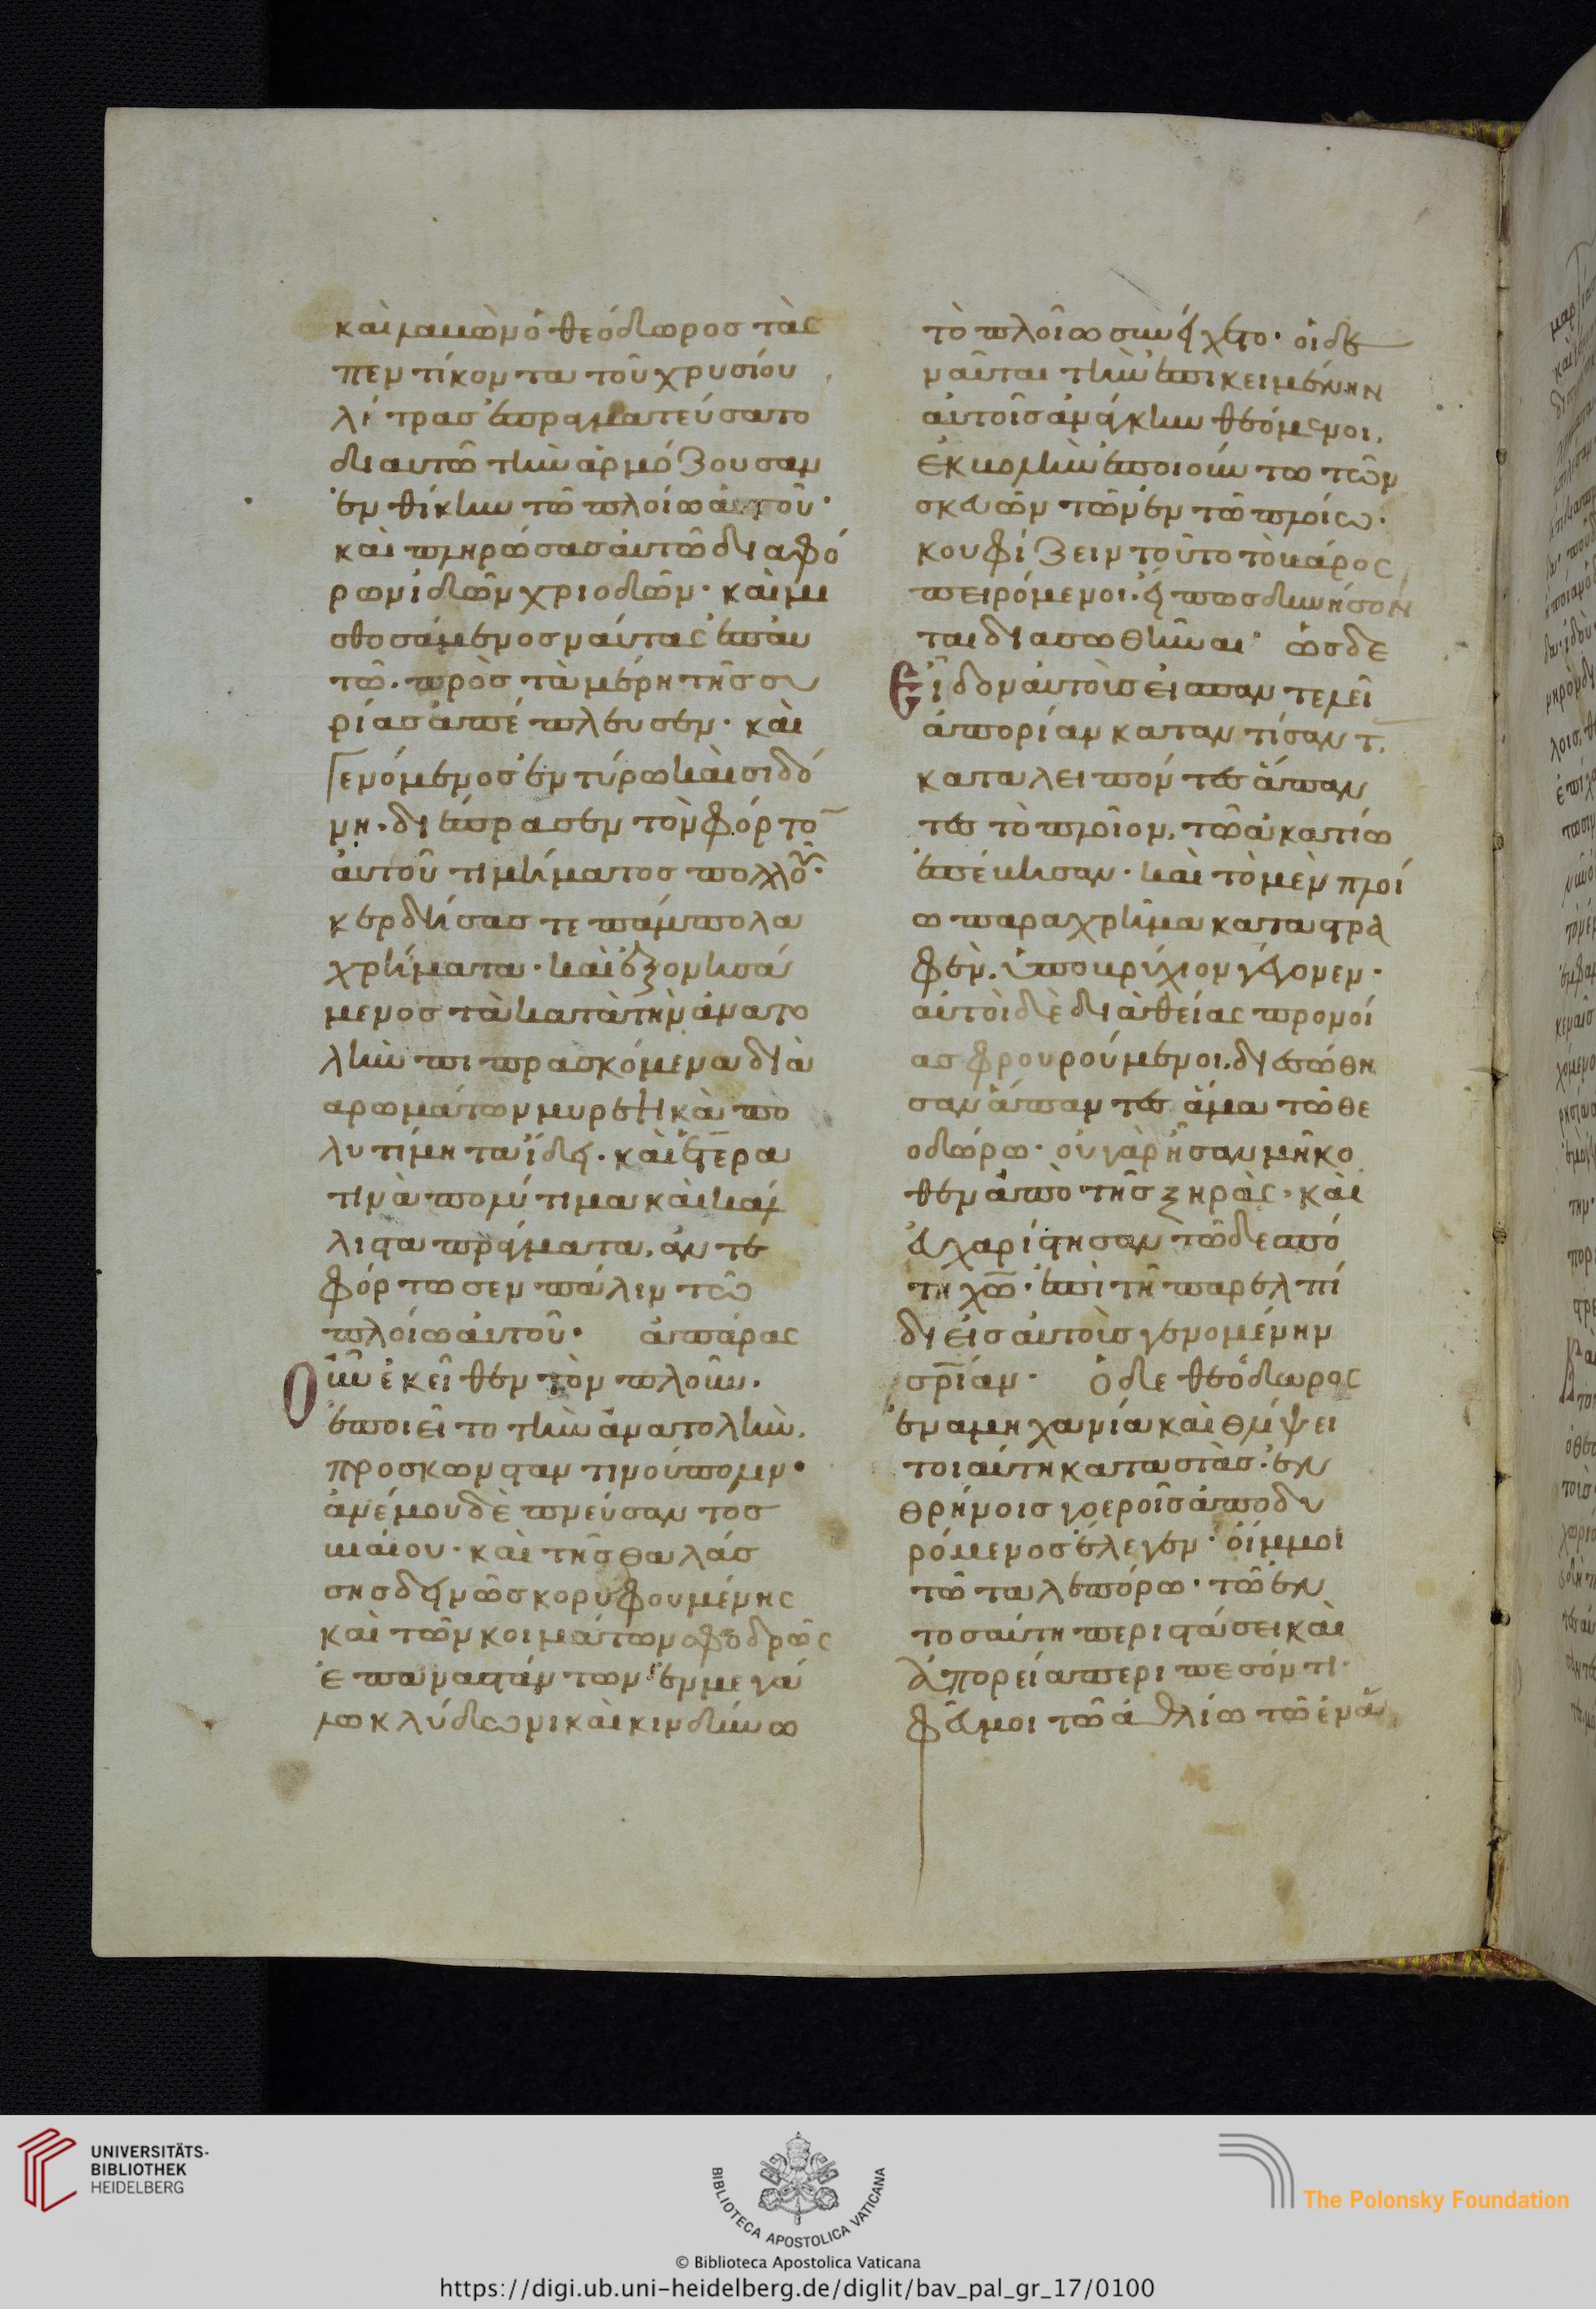 καὶ λαβὼν ὁ θεόδωρος τὰς
πεντίκοντα τοῦ χρυσίου
λίτρας ἐπραγματεύσατο
δι αυτῶ τὴν ἁρμόζουσαν
ἐνθίκην τῶ πλοίω αὐτοῦ·
καὶ πληρώσας αὐτῶ διαφό
ρων ἰδῶν χριοδῶν· καὶ μι
σθοσάμενος ναύτας ἐπ αυ
τῶ· πρὸς τὰ μέρη τῆς συ
ρίας ἀπέπλευσεν· καὶ
γενόμενος ἐν τύρω καὶ σιδό
νη· διέπρασεν τὸν φόρτο
αὐτοῦ τιμήματος πολλοῦ·
κερδήσας τε πάμπολα
χρήματα· καὶ ἐξονησά
μενος τὰ κατὰ τὴν ἀνατο
λὴν πιπρασκόμενα διὰ
αρωμάτων
λυτίμητα ἴδη· καὶ ἕτερα
τινὰ πολύτιμα καὶ κάλ
λιστα πράγματα, ἀντε
φόρτωσεν πάλιν τῶ
πλοίω αὐτοῦ· ἀπάρας
Οὖν ἐκεῖθεν τὸν πλοῦν·
ἐποιεῖτο τὴν ἀνατολὴν,
προσκωνσταντινούπολιν·
ἀνέμου δὲ πνεύσαντος
βιαίου· καὶ τῆς θαλάσ
σης δεινῶς κορυφουμένης
καὶ τῶν κοιμάτων σφοδρῶς
ἐπαναστάντων· ἐν μεγά
λω κλύδωνι καὶ κινδύνω
τὸ πλοῖω συνείχετο· οἱ δὲ
ναῦται τὴν ἐπικειμένην
αὐτοῖς ἀνάγκην θεόμενοι,
ἐκβολὴν ἐποιοῦντω τῶν
σκευῶν τῶν ἐν τῶ πλοίω·
κουφίζειν τοῦτο τὸ βάρος
πειρόμενοι· εἴπως δυνήσον
ται διασωθῆναι· ὡς δε
Εἶδον αὐτοὺς εἰς παντελεῖ
ἀπορίαν καταντίσαντ.
καταλειπόντες ἅπαν
τες τὸ πλοῖον, τῶ ἀκατίω
ἐπέβησαν· καὶ τὸ μὲν πλοί
ω παραχρῆμα καταστρα
φὲν, ὑποβρύχιον γέγονεν·
αὐτοὶ δὲ διὰ θείας προνοί
ας φρουρούμενοι, διεσώθη
σαν ἅπαντες ἅμα τῶ θε
οδώρω· οὐ γὰρ ἦσαν μῆκο
θεν ἀπὸ τῆς ξηρὰς· καὶ
εὐχαρίστησαν τῶ δεσπό
τη χῶ· ἐπὶ τῆ παρελπί
δι εἰς αὐτοὺς γενομένην
σρίαν· ὁ δε θεόδωρος
ἐν αμηχανία καὶ θλίψει
τοιαύτη καταστὰς· ἐν
θρήνοις γοεροῖς ἀποδυ
ρόμενος ἔλεγεν· οἴμμοι
τῶ ταλεπόρω· τῶ ἐν
τοσαύτη περιστάσει καὶ
ἀπορεία περιπεσόντι·
φεῦ μοι τῶ ἀθλίω τῶ
UNIVERSITÄTS-
BIBLIOTHEK
HEIDELBERG
BIBLIOTECA APOSTOLICA VATICANA
The Polonsky Foundation
© Biblioteca Apostolica Vaticana
https://digi.ub.uni-heidelberg.de/diglit/bav_pal_gr_17/0100